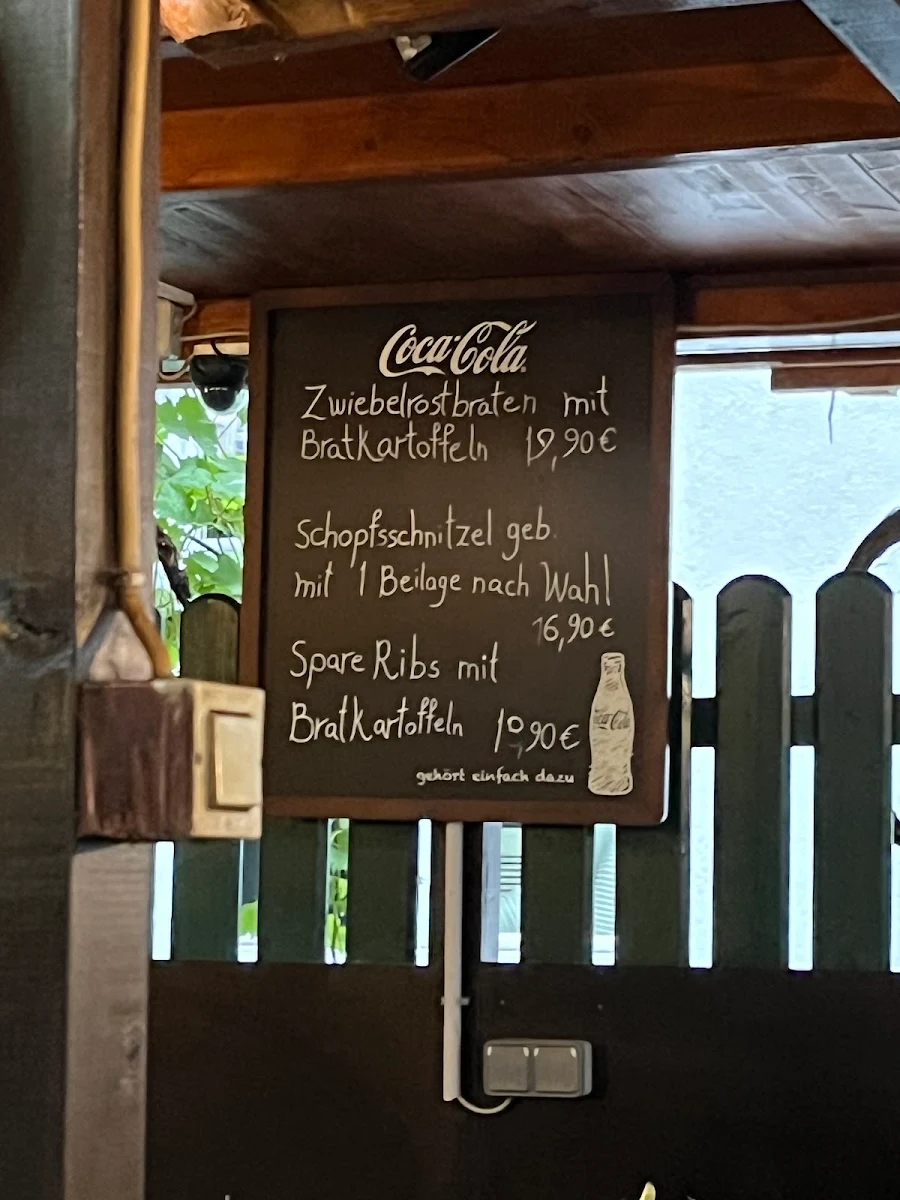 Coca-Cola
Zwiebelrostbraten mit
Bratkartoffeln 19,90€
Schopfsschnitzel geb.
mit 1 Beilage nach Wahl
16,90€
Spare Ribs mit
Bratkartoffeln
Coca-Cola
gehört einfach dazu